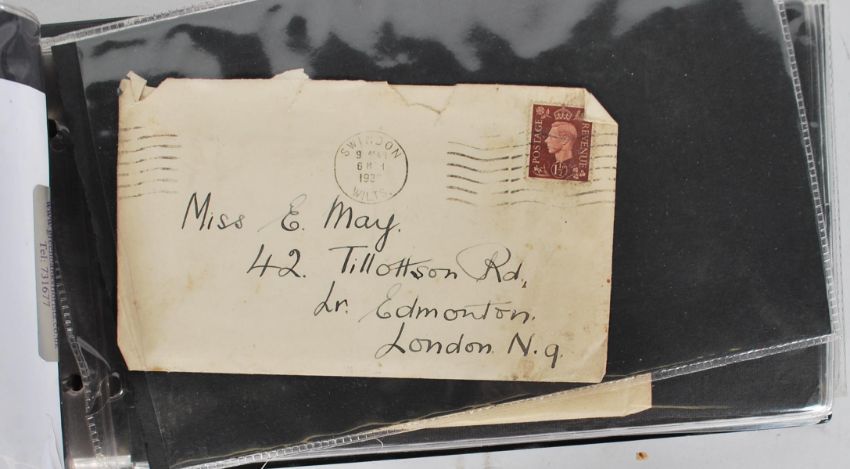 SWINDON
WILTS.
POSTAGE
REVENUE
1½
Miss E. May.
42. Tillottson Rd,
Lr. Edmonton.
London N.9.
Tel: 731677